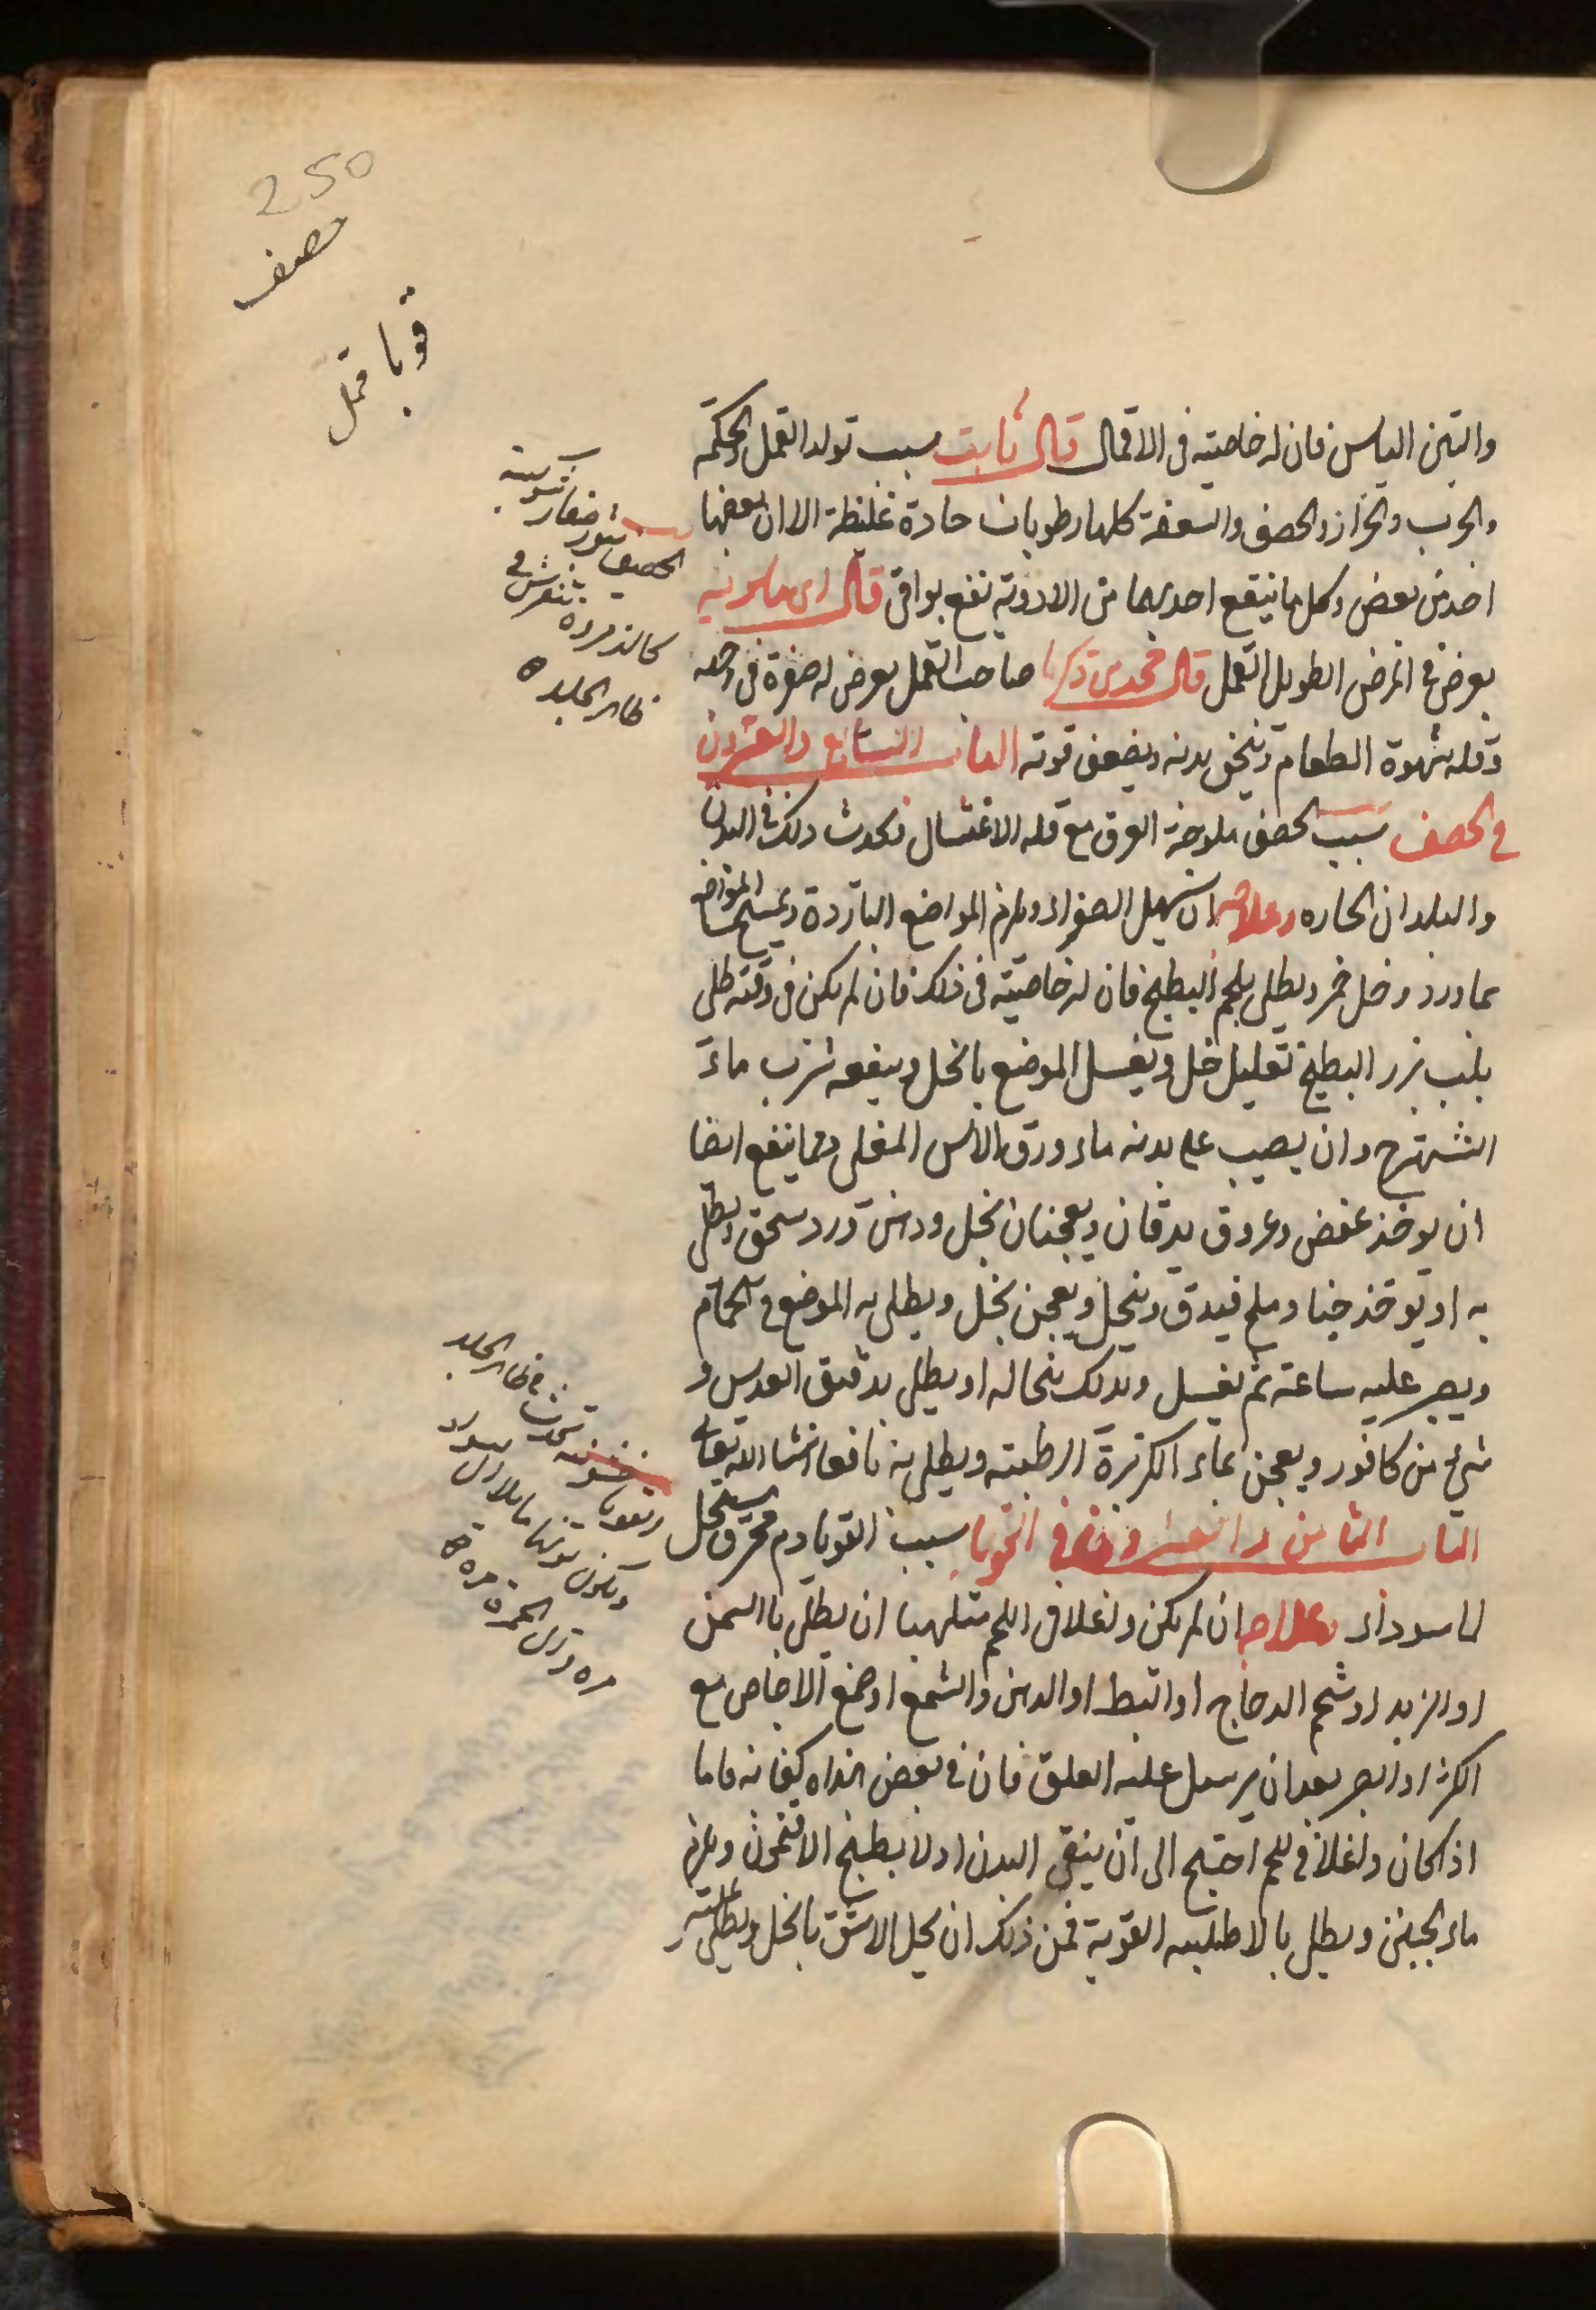 250
حصف
قوبا قمل
والتين اليابس فان له خاصيته فى الاقمال قال ثابت سبب تولد القمل والحكة
والجرب والحزاز والحصف والسعفة كلها رطوبات حادة غليظة الا ان بعضها
احد من بعض وكل ما ينفع احديهما من الادوية نفع بواقى قال ابن ماسويه
يعرض فى المرض الطويل القمل قال محمد بن زكريا صاحب القمل يعرض له صفرة فى وجهه
وقله شهوة الطعام وينحف بدنه ويضعف قوته الباب السابع والعشرون
فى الحصف سبب الحصف ملوحة العرق مع قله الاغتسال فيحدث ذلك فى البدن
والبلدان الحاره وعلاجه ان يسهل الصفراء ويلزم المواضع الباردة ويمسح المواضع
بماورد وخل خمر ويطلى بلحم البطيخ فان له خاصيته فى ذلك فان لم يكن فى وقته طلى
بلب بزر البطيخ بقليل خل ويغسل الموضع بالخل وينفعه شرب ماء
الشهترج وان يصب على بدنه ماء ورق الاس المغلى ومما ينفع ايضا
ان يوخذ عفص وعروق يدقان ويعجنان بخل ودهن ورد سحق ويطلى
به او يوخذ حنا وملح فيدق وينخل ويعجن بخل ويطلى به الموضع فى الحمام
ويصبر عليه ساعة ثم يغسل ويدلك بنخاله او يطلى بدقيق العدس و
شئ من كافور ويعجن بماء الكزبرة الرطبته ويطلى به نافع انشاالله تعالى
الباب الثامن والعشرون فى القوبا سبب القوبا دم محترق يستحيل
الى سوداء وعلاجه ان لم يكن واغلا فى اللحم متلهبا ان يطلى بالسمن
او الزبد او شحم الدجاج او البط او الدهن والشمع او صمغ الاجاص مع
الكثر او الصبر بعد ان يرسل عليه العلق فان فى بعض هذه كفايه فاما
اذا كان واغلا فى للحم احتيج الى ان ينقى البدن اولا بطبخ الافتمون ويلزم
ماء الجبن ويطلى بالاطليه القوية فمن ذلك ان يحل الاشق بالخل ويطلى عليه
الحصف بثور صغار شوكية
كالذروره تنفرش فى
ظاهر الجلد
القوبا خشونة تحدث فى ظاهر الجلد
ويكون لونها مايلا الى السواد
مره وترى الحمرة مرة